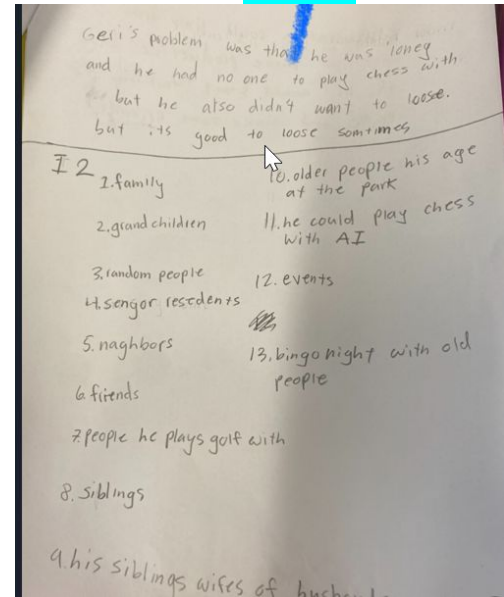 Geri's problem was that he was loney
and he had no one to play chess with
but he also didn't want to loose.
but its good to loose somtimes
I2
1. family
2. grand children
3. random people
4. sengor resedents
5. naghbors
6. firends
7. people he plays golf with
8. siblings
9. his siblings wifes of
10. older people his age
at the park
11. he could play chess
with AI
12. events
13. bingo night with old
people